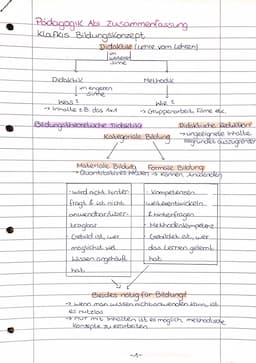 Pädagogik Abi Zusammenfassung
Klafkis Bildungskonzept
Didaktik (Lehre vom Lehren)
im
weiteren
Sinne
Didaktik Methodik
im engeren
Sinne
Was? Wie?
→ Inhalte z.B. das 1x1 → Gruppenarbeit, Filme etc.
Bildungstheoretische Didaktik Didaktische Reduktion:
Kategoriale Bildung → ungeeignete Inhalte
begründet auszugrenzen
Materiale Bildung Formale Bildung
→ Quantitatives Wissen → Können, Anwenden
· wird nicht hinter-
fragt & ist nicht
anwendbar/über-
tragbar
· Gebildet ist, wer
möglichst viel
Wissen angehäuft
hat
· Kompetenzen
weiterentwickeln
& hinterfragen
· Methodenkompetenz
· Gebildet ist, wer
das Lernen gelernt
hat
Beides nötig für Bildung!
→ wenn man Wissen nicht anwenden kann, ist
es nutzlos
→ nur mit Inhalten ist es möglich, methodische
Konzepte zu erarbeiten
-1-